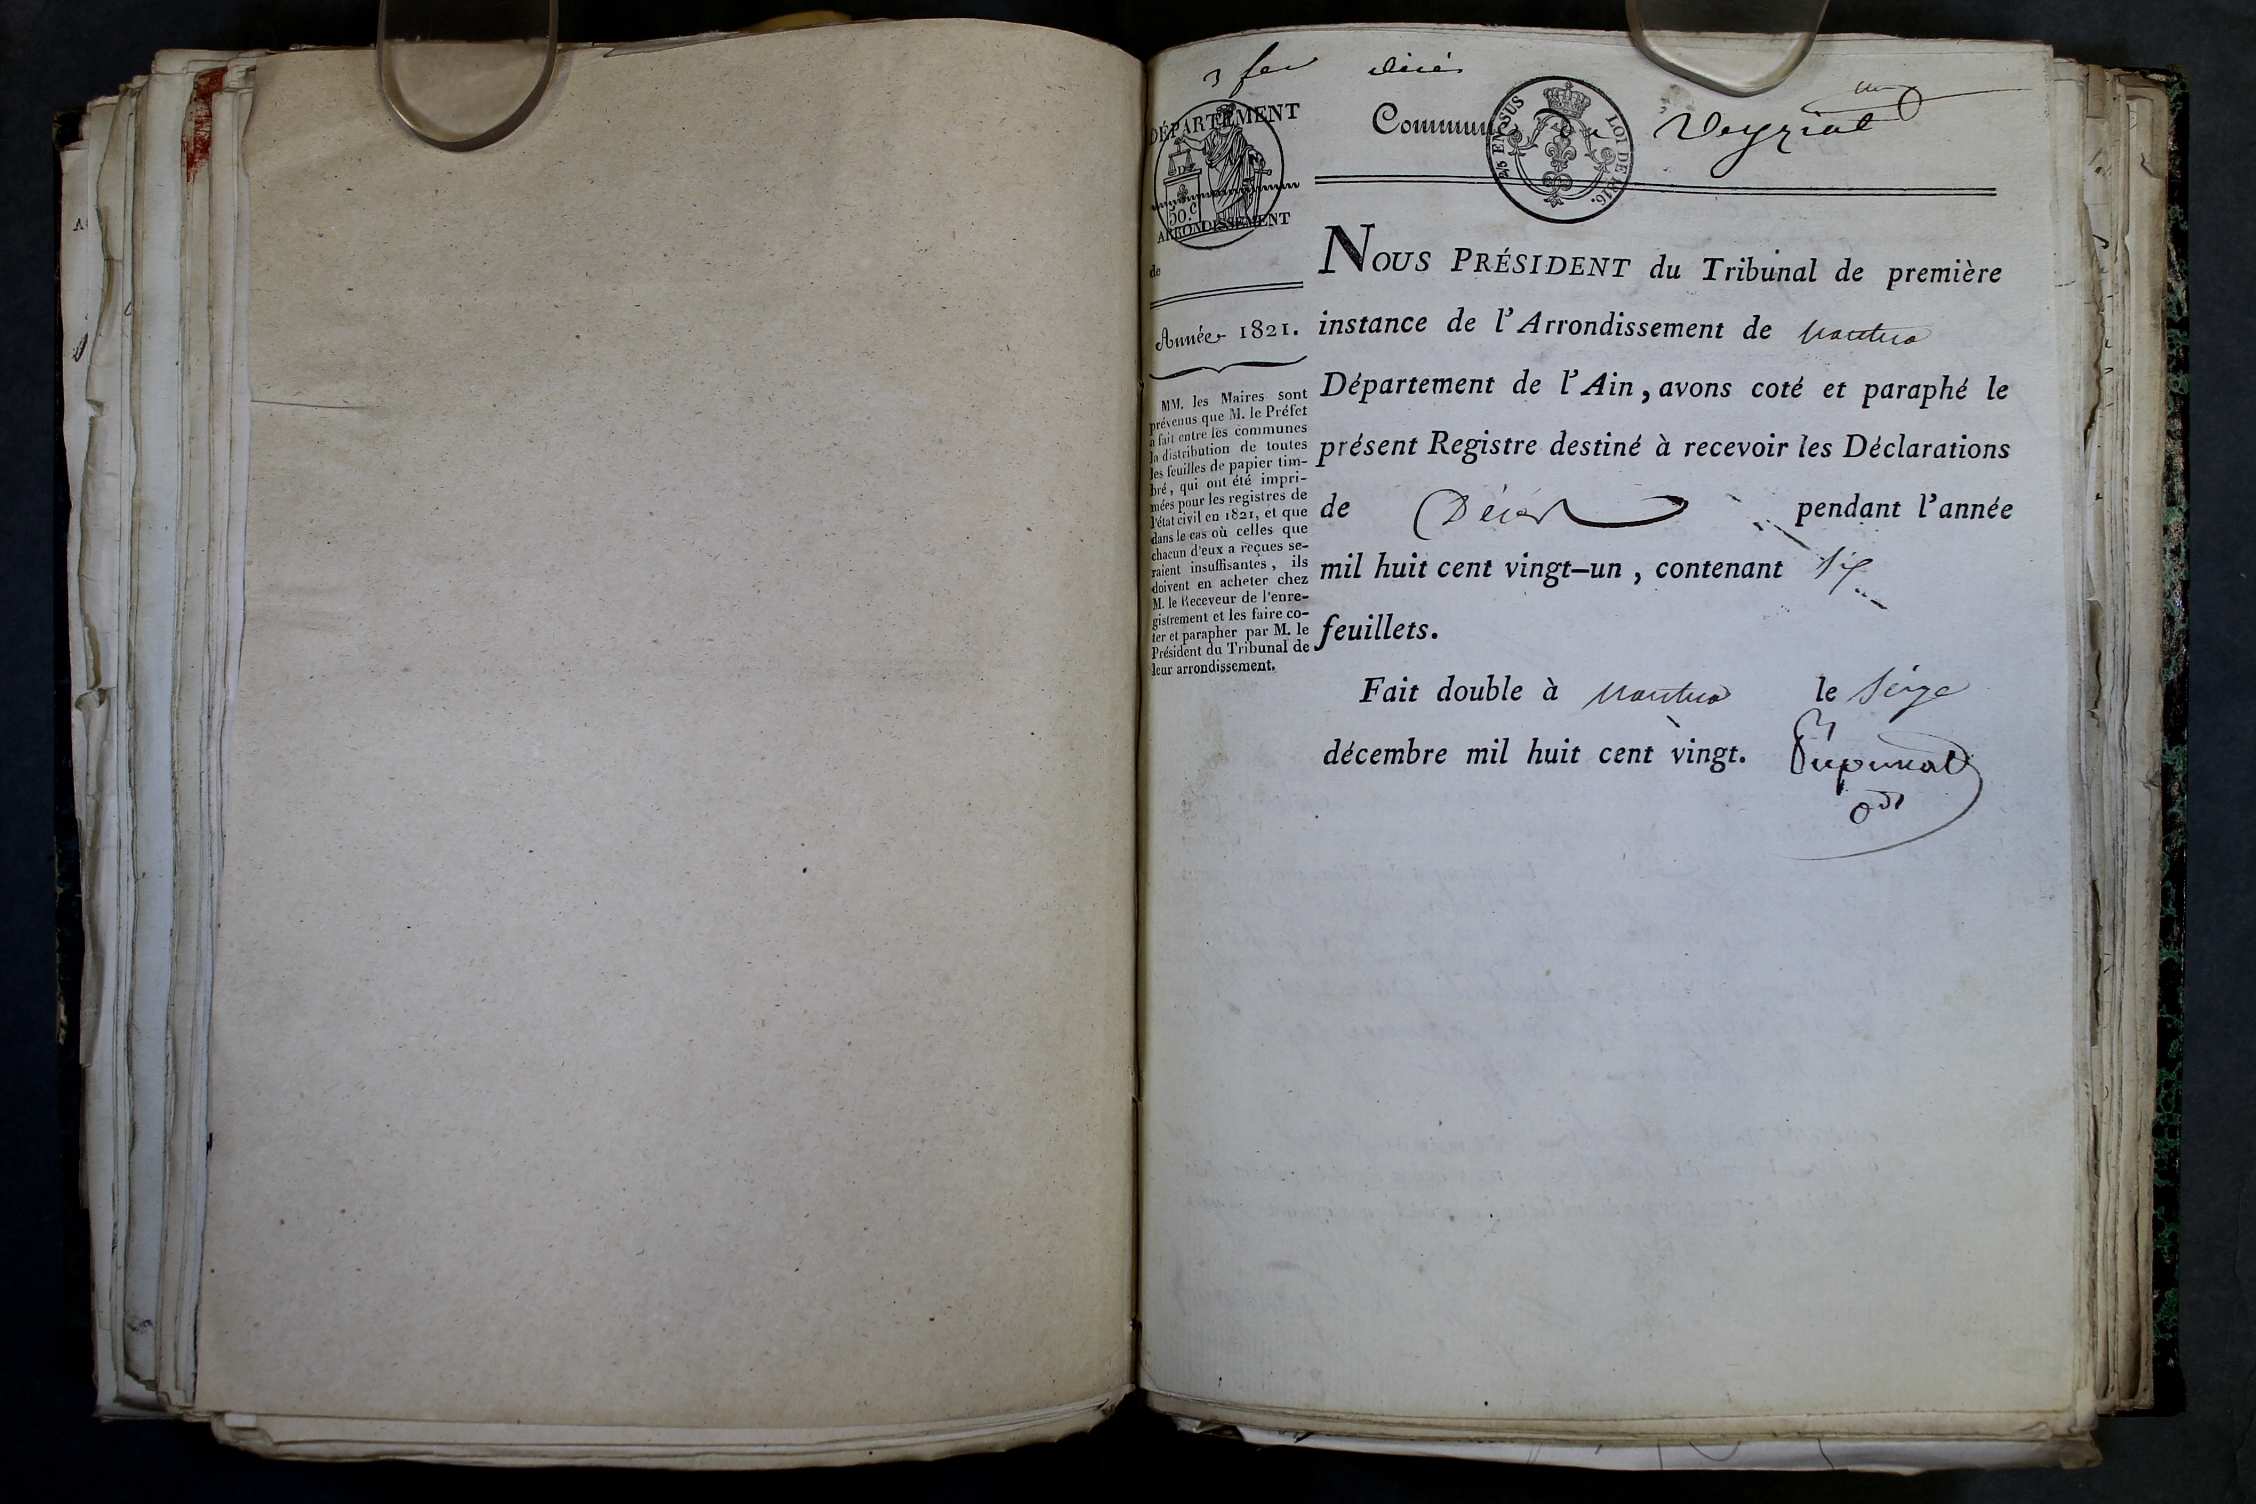 3 feu décès
DÉPARTEMENT
DE
50.c
ARRONDISSEMENT
de
Année 1821.
MM. les Maires sont
prévenus que M. le Préfet
a fait entre les communes
la distribution de toutes
les feuilles de papier tim-
bré, qui ont été impri-
mées pour les registres de
l'état civil en 1821, et que
dans le cas où celles que
chacun d'eux a reçues se-
raient insuffisantes, ils
doivent en acheter chez
M. le Receveur de l'enre-
gistrement et les faire co-
ter et parapher par M. le
Président du Tribunal de
leur arrondissement.
Commune de Veyziat
EN SUS LOI DE 1816.
NOUS PRÉSIDENT du Tribunal de première
instance de l'Arrondissement de Nantua
Département de l'Ain, avons coté et paraphé le
présent Registre destiné à recevoir les Déclarations
de Décès pendant l'année
mil huit cent vingt-un, contenant six
feuillets.
Fait double à Nantua le seize
décembre mil huit cent vingt.